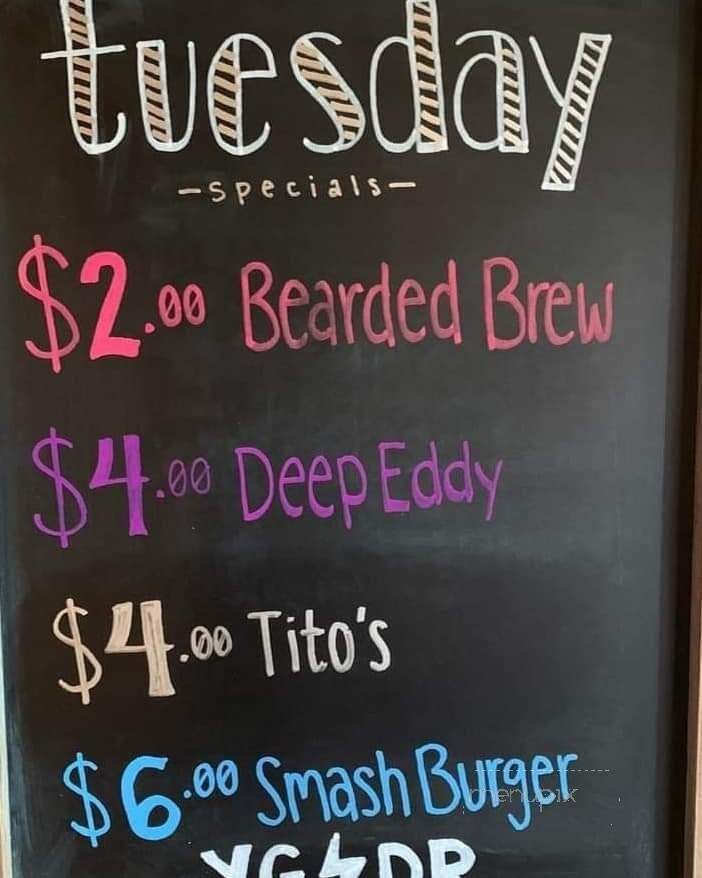 tuesday
-specials-
$2.00 Bearded Brew
$4.00 Deep Eddy
$4.00 Tito's
$6.00 Smash Burger
menupix